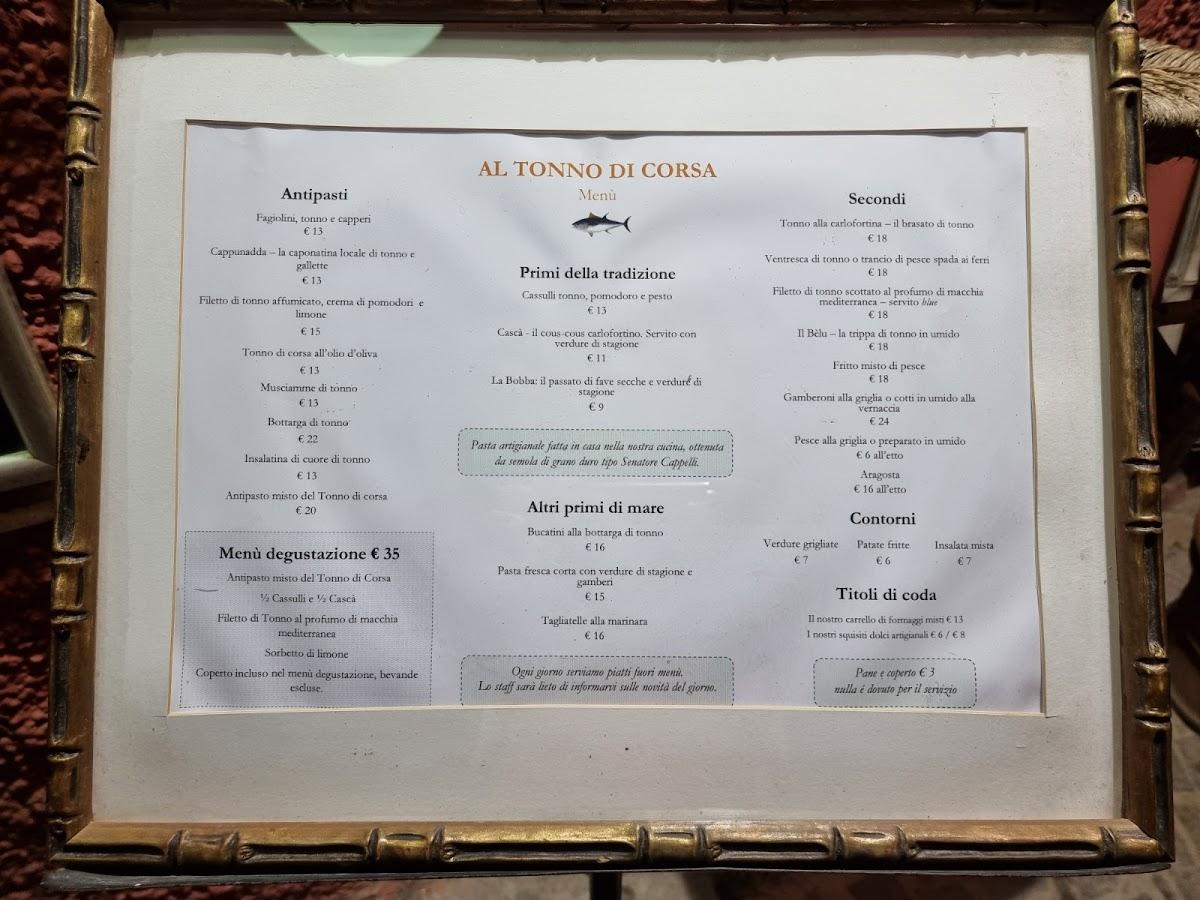 AL TONNO DI CORSA
Menù
Antipasti
Fagiolini, tonno e capperi
€ 13
Cappunadda – la caponatina locale di tonno e
gallette
€ 13
Filetto di tonno affumicato, crema di pomodori e
limone
€ 15
Tonno di corsa all'olio d'oliva
€ 13
Musciamme di tonno
€ 13
Bottarga di tonno
€ 22
Insalatina di cuore di tonno
€ 13
Antipasto misto del Tonno di corsa
€ 20
Menù degustazione € 35
Antipasto misto del Tonno di Corsa
½ Cassulli e ½ Cascà
Filetto di Tonno al profumo di macchia
mediterranea
Sorbetto di limone
Coperto incluso nel menù degustazione, bevande
escluse.
Primi della tradizione
Cassulli tonno, pomodoro e pesto
€ 13
Cascà - il cous-cous carlofortino. Servito con
verdure di stagione
€ 11
La Bobba: il passato di fave secche e verdure di
stagione
€ 9
Pasta artigianale fatta in casa nella nostra cucina, ottenuta
da semola di grano duro tipo Senatore Cappelli.
Altri primi di mare
Bucatini alla bottarga di tonno
€ 16
Pasta fresca corta con verdure di stagione e
gamberi
€ 15
Tagliatelle alla marinara
€ 16
Ogni giorno serviamo piatti fuori menù.
Lo staff sarà lieto di informarvi sulle novità del giorno.
Secondi
Tonno alla carlofortina – il brasato di tonno
€ 18
Ventresca di tonno o trancio di pesce spada ai ferri
€ 18
Filetto di tonno scottato al profumo di macchia
mediterranea – servito blue
€ 18
Il Bèlu – la trippa di tonno in umido
€ 18
Fritto misto di pesce
€ 18
Gamberoni alla griglia o cotti in umido alla
vernaccia
€ 24
Pesce alla griglia o preparato in umido
€ 6 all'etto
Aragosta
€ 16 all'etto
Contorni
Verdure grigliate Patate fritte Insalata mista
€ 7 € 6 € 7
Titoli di coda
Il nostro carrello di formaggi misti € 13
I nostri squisiti dolci artigianali € 6 / € 8
Pane e coperto € 3
nulla é dovuto per il servizio